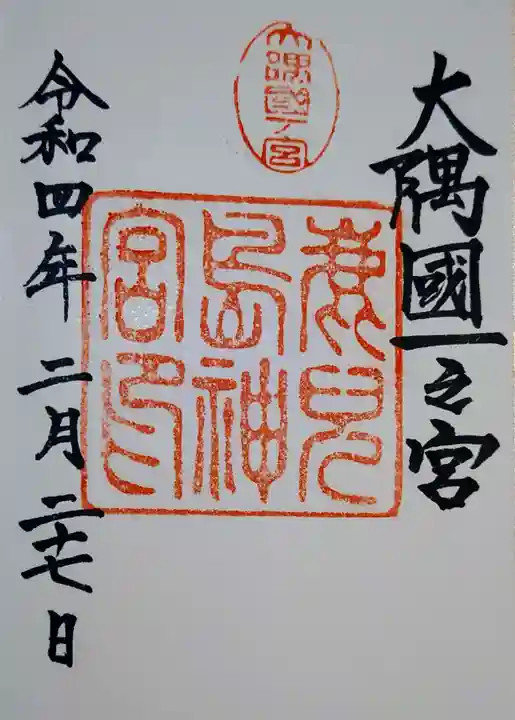 大隅國一之宮
大隅國一宮
鹿兒
島神
宮印
令和四年二月二十七日